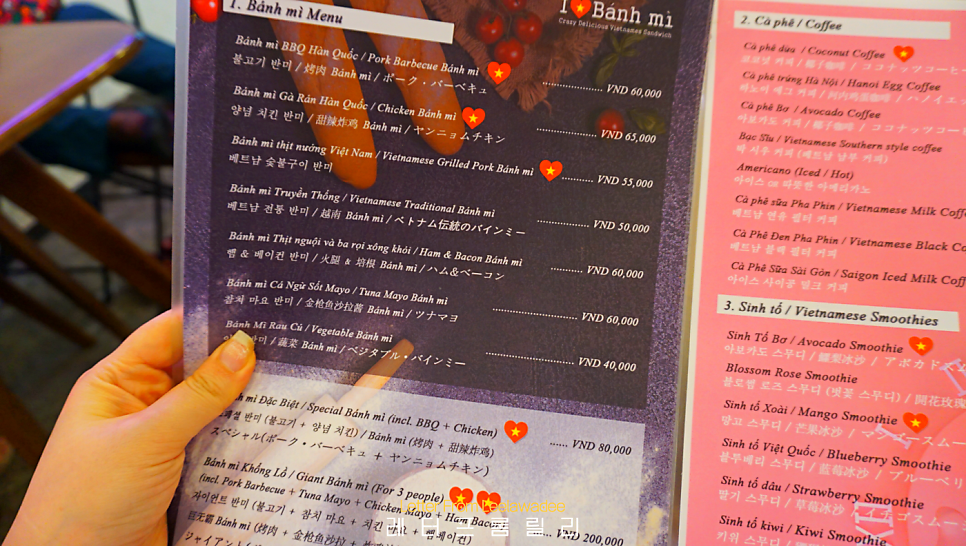 1. Bánh mì Menu
I Bánh mì
Crazy Delicious Vietnamese Sandwich
Bánh mì BBQ Hàn Quốc / Pork Barbecue Bánh mì
불고기 반미 / 烤肉 Bánh mì / ポーク・バーベキュ
VND 60,000
Bánh mì Gà Rán Hàn Quốc / Chicken Bánh mì
양념 치킨 반미 / 甜辣炸鸡 Bánh mì / ヤンニョムチキン
VND 65,000
Bánh mì thịt nướng Việt Nam / Vietnamese Grilled Pork Bánh mì
베트남 숯불구이 반미
VND 55,000
Bánh mì Truyền Thống / Vietnamese Traditional Bánh mì
베트남 전통 반미 / 越南 Bánh mì / ベトナム伝統のバインミー
VND 50,000
Bánh mì Thịt nguội và ba rọi xông khói / Ham & Bacon Bánh mì
햄 & 베이컨 반미 / 火腿 & 培根 Bánh mì / ハム&ベーコン
VND 60,000
Bánh mì Cá Ngừ Sốt Mayo / Tuna Mayo Bánh mì
참치 마요 반미 / 金枪鱼沙拉酱 Bánh mì / ツナマヨ
VND 60,000
Bánh Mì Rau Củ / Vegetable Bánh mì
반미 / 蔬菜 Bánh mì / ベジタブル・バインミー
VND 40,000
mì Đặc Biệt / Special Bánh mì (incl. BBQ + Chicken)
반미 (불고기 + 양념 치킨) / Bánh mì (烤肉 + 甜辣炸鸡)
スペシャル(ポーク・バーベキュ + ヤンニョムチキン)
VND 80,000
Bánh mì Khổng Lồ / Giant Bánh mì (For 3 people)
(incl. Pork Barbecue + Tuna Mayo + Chicken Mayo + Ham Bacon
자이언트 반미 (불고기 + 참치 마요 + 치킨
巨无霸 Bánh mì (烤肉 + 金枪鱼沙拉
VND 200,000
2. Cà phê / Coffee
Cà phê dừa / Coconut Coffee
코코넛 커피 / 椰子咖啡 / ココナッツコーヒー
Cà phê trứng Hà Nội / Hanoi Egg Coffee
하노이 에그 커피 / 河内鸡蛋咖啡 / ハノイエッ
Cà phê Bơ / Avocado Coffee
아보카도 커피 / 椰子咖啡 / ココナッツコーヒ
Bạc Sỉu / Vietnamese Southern style coffee
박 시우 커피 (베트남 남부 커피)
Americano (Iced / Hot)
아이스 or 따뜻한 아메리카노
Cà phê sữa Pha Phin / Vietnamese Milk Coff
베트남 연유 필터 커피
Cà Phê Đen Pha Phin / Vietnamese Black Co
베트남 블랙 필터 커피
Cà Phê Sữa Sài Gòn / Saigon Iced Milk Coff
아이스 사이공 밀크 커피
3. Sinh tố / Vietnamese Smoothies
Sinh Tố Bơ / Avocado Smoothie
아보카도 스무디 / 鳄梨冰沙 / アボカド
Blossom Rose Smoothie
블로썸 로즈 스무디 (벚꽃 스무디) / 開花玫瑰
Sinh tố Xoài / Mango Smoothie
망고 스무디 / 芒果冰沙 / マンゴースムー
Sinh tố Việt Quốc / Blueberry Smoothie
블루베리 스무디 / 蓝莓冰沙 / ブルーベリ
Sinh tố dâu / Strawberry Smoothie
딸기 스무디 / 草莓冰沙 / イチゴスムー
Sinh tố kiwi / Kiwi Smoothie
키위 스무디